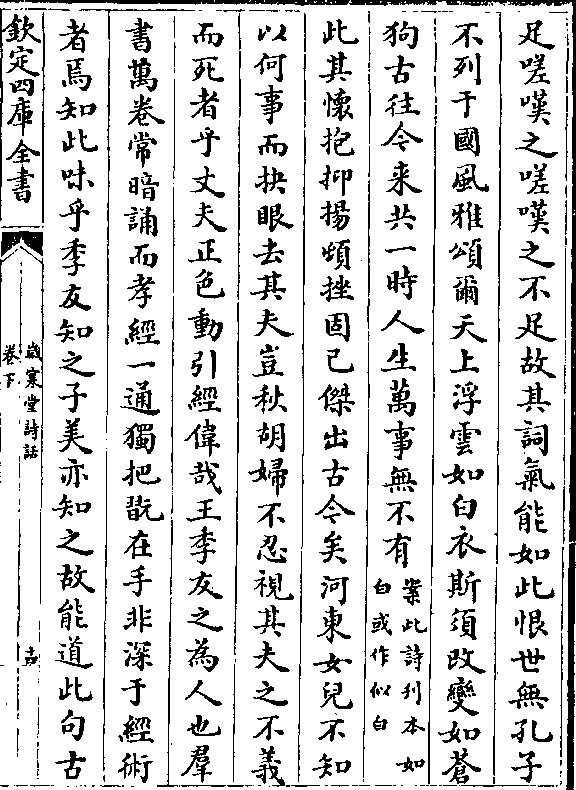 足嗟嘆之嗟嘆之不足故其詞氣能如此恨世無孔子
不列于國風雅頌爾天上浮雲如白衣斯須改變如蒼
狗古往今來共一時人生萬事無不有案此詩刋本如白或作似白
此其懷抱抑揚頓挫固已傑出古今矣河東女兒不知
以何事而抉眼去其夫豈秋胡婦不忍視其夫之不義
而死者乎丈夫正色動引經偉哉王季友之為人也羣
書萬卷常暗誦而孝經一通獨把翫在手非深于經術
者焉知此味乎季友知之子美亦知之故能道此句古
欽定四庫全書
歲寒堂詩話
卷下
十四